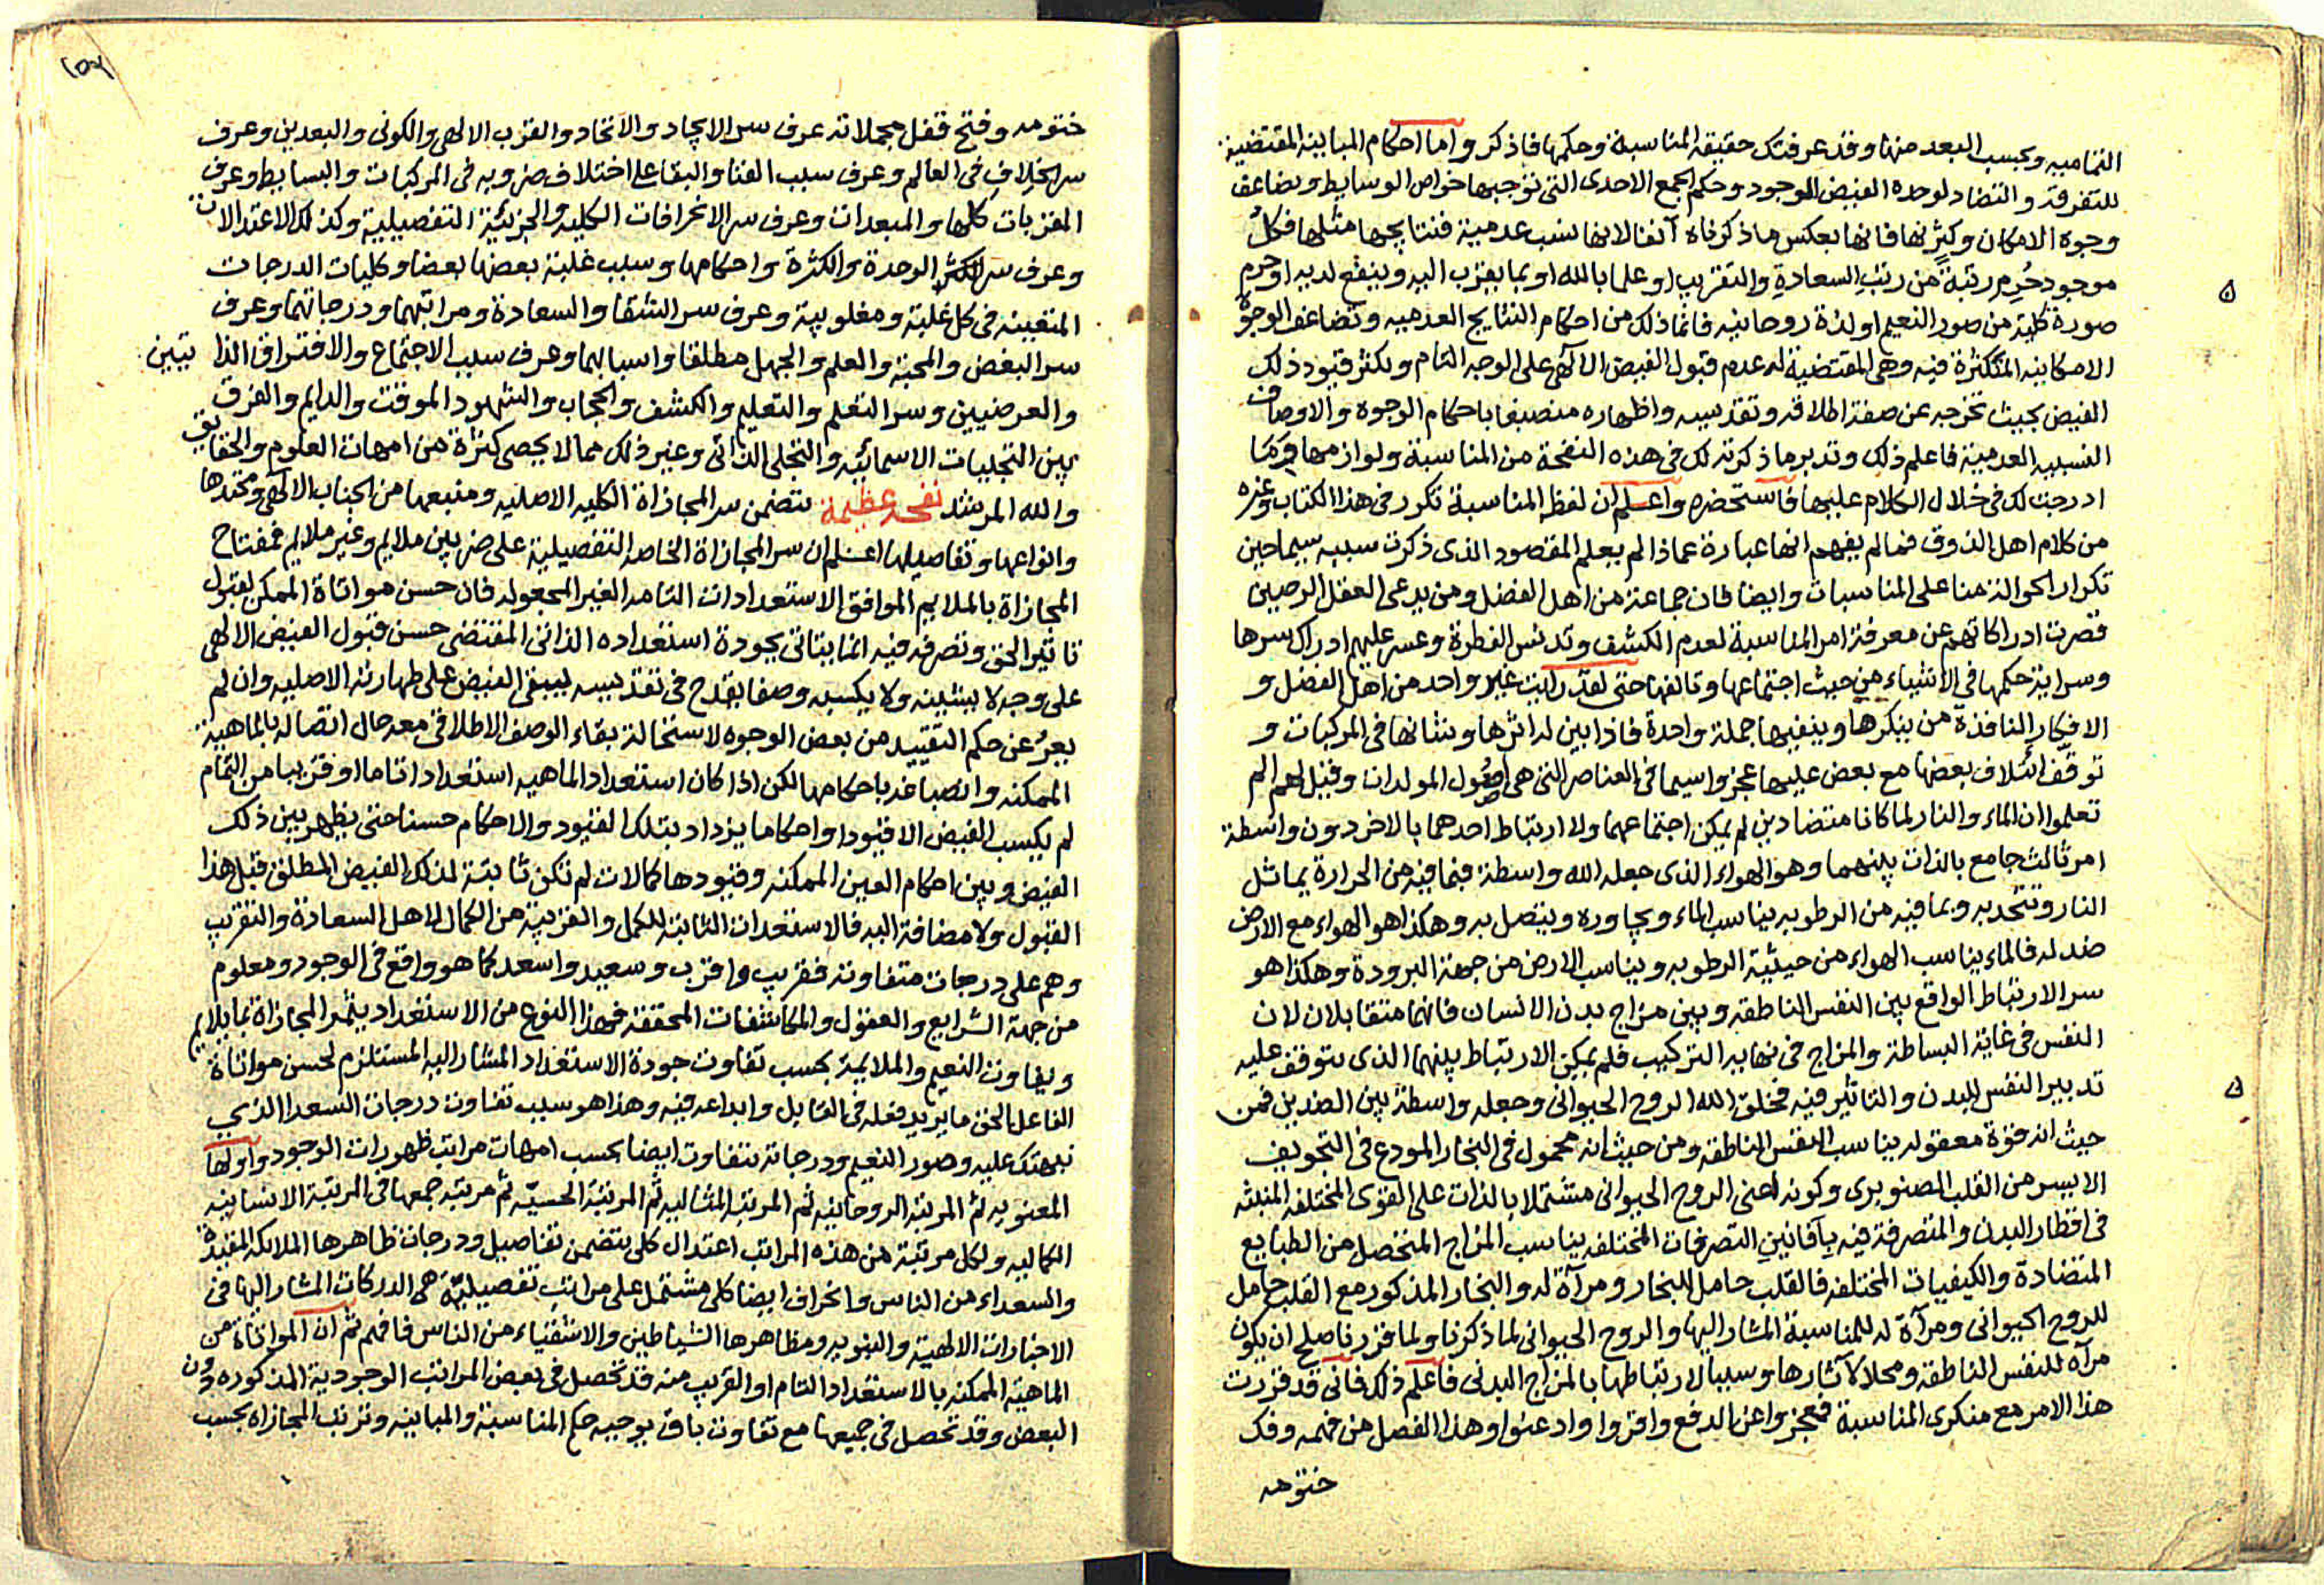 التمامية وبحسب البعد منها وقد عرفتك حقيقة المناسبة وحكمها فاذكر واما احكام المباينة المقتضية
للتفرقة والتضاد لوحدة الفيض الموجود وحكم الجمع الاحدى التى توجبها خواص الوسايط وتضاعف
وجوه الامكان وكثرتها فانها بعكس ما ذكرناه آنفا لانها نسب عدمية فنتايجها مثلها فكل
موجود حُرِم رتبةً من رتب السعادة والتقريب او علما بالله او بما يقرب اليه وينفع لديه او حرم
صورة كلية من صور النعيم او لذة روحانية فانما ذلك من احكام النتايج العدمية وتضاعف الوجوه
الامكانية المتكثرة فيه وهى المقتضية له عدم قبول الفيض الالهى على الوجه التام وتكثر قيود ذلك
الفيض بحيث تخرجه عن صفة اطلاقه وتقديسه واظهاره منصبغا باحكام الوجوه والاوصاف
النسبية العدمية فاعلم ذلك وتدبر ما ذكرته لك فى هذه النفحة من المناسبة ولوازمها وبما
ادرجت لك فى خلال الكلام عليها فاستحضره واعلم ان لفظ المناسبة تكرر فى هذا الكتاب وغيره
من كلام اهل الذوق فما لم يفهم انها عبارة عماذا لم يعلم المقصود الذى ذكرت سببه سيما حين
تكرار الحوالة منا على المناسبات وايضا فان جماعة من اهل الفضل ومن يدعى العقل الرصين
قصرت ادراكاتهم عن معرفة امر المناسبة لعدم الكشف وتدنس الفطرة وعسر عليهم ادراك سرها
وسراية حكمها فى الاشياء من حيث اجتماعها وتالفها حتى لقد رايت غير واحد من اهل الفضل و
الافكار النافذة من ينكرها وينفيها جملة واحدة فاذا بين له اثرها وشانها فى المركبات و
توقف ائتلاف بعضها مع بعض عليها عجزوا سيما فى العناصر التى هى اصول المولدات وقيل لهم الم
تعلموا ان الماء والنار لما كانا متضادين لم يمكن اجتماعهما ولا ارتباط احدهما بالاخر دون واسطة
امر ثالث جامع بالذات بينهما وهو الهواء الذى جعله الله واسطة فبما فيه من الحرارة يماثل
النار وتتحد به وبما فيه من الرطوبة يناسب الماء ويجاوره ويتصل به وهكذا هو الهواء مع الارض
ضد له فالماء يناسب الهواء من حيثية الرطوبة ويناسب الارض من جهة البرودة وهكذا هو
سر الارتباط الواقع بين النفس الناطقه وبين مزاج بدن الانسان فانهما متقابلان لان
النفس فى غاية البساطة والمزاج فى نهاية التركيب فلم يمكن الارتباط بينهما الذى يتوقف عليه
تدبير النفس للبدن والتاثير فيه فخلق الله الروح الحيوانى وجعله واسطةً بين الضدين فمن
حيث انه قوة معقوله يناسب النفس الناطقه ومن حيث انه محمول فى البخار المودع فى التجويف
الايسر من القلب الصنوبرى وكونه اعنى الروح الحيوانى مشتملا بالذات على القوى المختلفه المنبثه
فى اقطار البدن والمتصرفة فيه بأفانين التصرفات المختلفه يناسب المزاج المتحصل من الطبايع
المتضادة والكيفيات المختلفه فالقلب حامل للبخار ومرآة له والبخار المذكور مع القلب حامل
للروح الحيوانى ومرآة له للمناسبة المشار اليها والروح الحيوانى لما ذكرنا ولما قررنا صلح ان يكون
مرآه للنفس الناطقه ومحلا لآثارها وسببا لارتباطها بالمزاج البدنى فاعلم ذلك فانى قد قررت
هذا الامر مع منكرى المناسبة فعجزوا عن الدفع واقروا وادعنوا وهذا الفصل من فهمه وفك
ختومه
ختومه وفتح قفل مجملاته عرف سر الايجاد والاتحاد والقرب الالهى والكونى والبعدين وعرف
سر الخلاف فى العالم وعرف سبب الفنا والبقا على اختلاف ضروبه فى المركبات والبسايط وعرف
المقربات كلها والمبعدات وعرف سر الانحرافات الكليه والجزئية التفصيلية وكذلك الاعتدالات
وعرف سر الوحدة والكثرة واحكامها وسبب غلبة بعضها بعضا وكليات الدرجات
المتعينه فى كل غلبة ومغلوبية وعرف سر الشقا والسعادة ومراتبهما ودرجاتهما وعرف
سر البغض والمحبة والعلم والجهل مطلقا واسبابهما وعرف سبب الاجتماع والافتراق الذاتيين
والعرضيين وسر التعلم والتعليم والكشف والحجاب والشهود الموقت والدايم والفرق
بين التجليات الاسمائيه والتجلى الذاتى وغير ذلك مما لا يحصى كثرة من امهات العلوم والحقايق
والله المرشد نفحة عظيمة تتضمن سر المجازاة الكليه الاصليه ومنبعها من الجناب الالهى ومحتدها
وانواعها وتفاصيلها اعلم ان سر المجازاة الخاصه التفصيلية على ضربين ملايم وغير ملايم فمفتاح
المجازاة بالملايم الموافق الاستعدادات التامه الغير المجعوله فان حسن مواتاة الممكن لقبول
تاثير الحق وتصرفه فيه انما يتاتى بجودة استعداده الذاتى المقتضى حسن قبول الفيض الالهى
على وجه لا يشينه ولا يكسبه وصفا يقدح فى تقديسه ليبقى الفيض على طهارته الاصليه وان لم
يعرُ عن حكم التقييد من بعض الوجوه لاستحالة بقاء الوصف الاطلاقى معه حال اتصاله بالماهية
الممكنه وانصباغه باحكامها لكن اذا كان استعداد الماهيه استعدادا تاما او قريبا من التمام
لم يكسب الفيض الا قيودا واحكاما يزداد بتلك القيود والاحكام حسنا حتى يظهر بين ذلك
الفيض وبين احكام العين الممكنه وقيودها كمالات لم تكن ثابتة لذلك الفيض المطلق قبل هذا
القبول ولا مضافة اليه فالاستعدادات التامة للكمل والقريبة من الكمال لاهل السعادة والتقريب
وهم على درجات متفاوته فقريب واقرب وسعيد واسعد كما هو واقع فى الوجود ومعلوم
من جهة الشرايع والعقول والمكاشفات المحققه فهذا النوع من الاستعداد يثمر المجازاة بما يلايم
ويفاوت النعيم والملايمة بحسب تفاوت جودة الاستعداد المشار اليه المستلزم لحسن مواتاة
الفاعل الحق ما يريد فعله فى القابل وابداعه فيه وهذا هو سبب تفاوت درجات السعدا الذى
نبهتك عليه وصور النعيم ودرجاته تتفاوت ايضا بحسب امهات مراتب ظهورات الوجود واولها
المعنويه ثم المرتبة الروحانيه ثم المرتبة المثاليه ثم المرتبة الحسيّه ثم مرتبة جمعها فى المرتبة الانسانيه
الكماليه ولكل مرتبة من هذه المراتب اعتدال كلى يتضمن تفاصيل ودرجات ظاهرها الملائكه المقيدة
والسعداء من الناس وانحراف ايضا كلى مشتمل على مراتب تفصيليّة هى الدركات المشار اليها فى
الاخبارات الالهية والنبويه ومظاهرها الشياطين والاشقياء من الناس فافهم ثم ان المواتاة من
الماهية الممكنه بالاستعداد التام او القريب منه قد تحصل فى بعض المراتب الوجودية المذكوره دون
البعض وقد تحصل فى جميعها مع تفاوت باق يوجبه حكم المناسبة والمباينه وترتب المجازاه بحسب